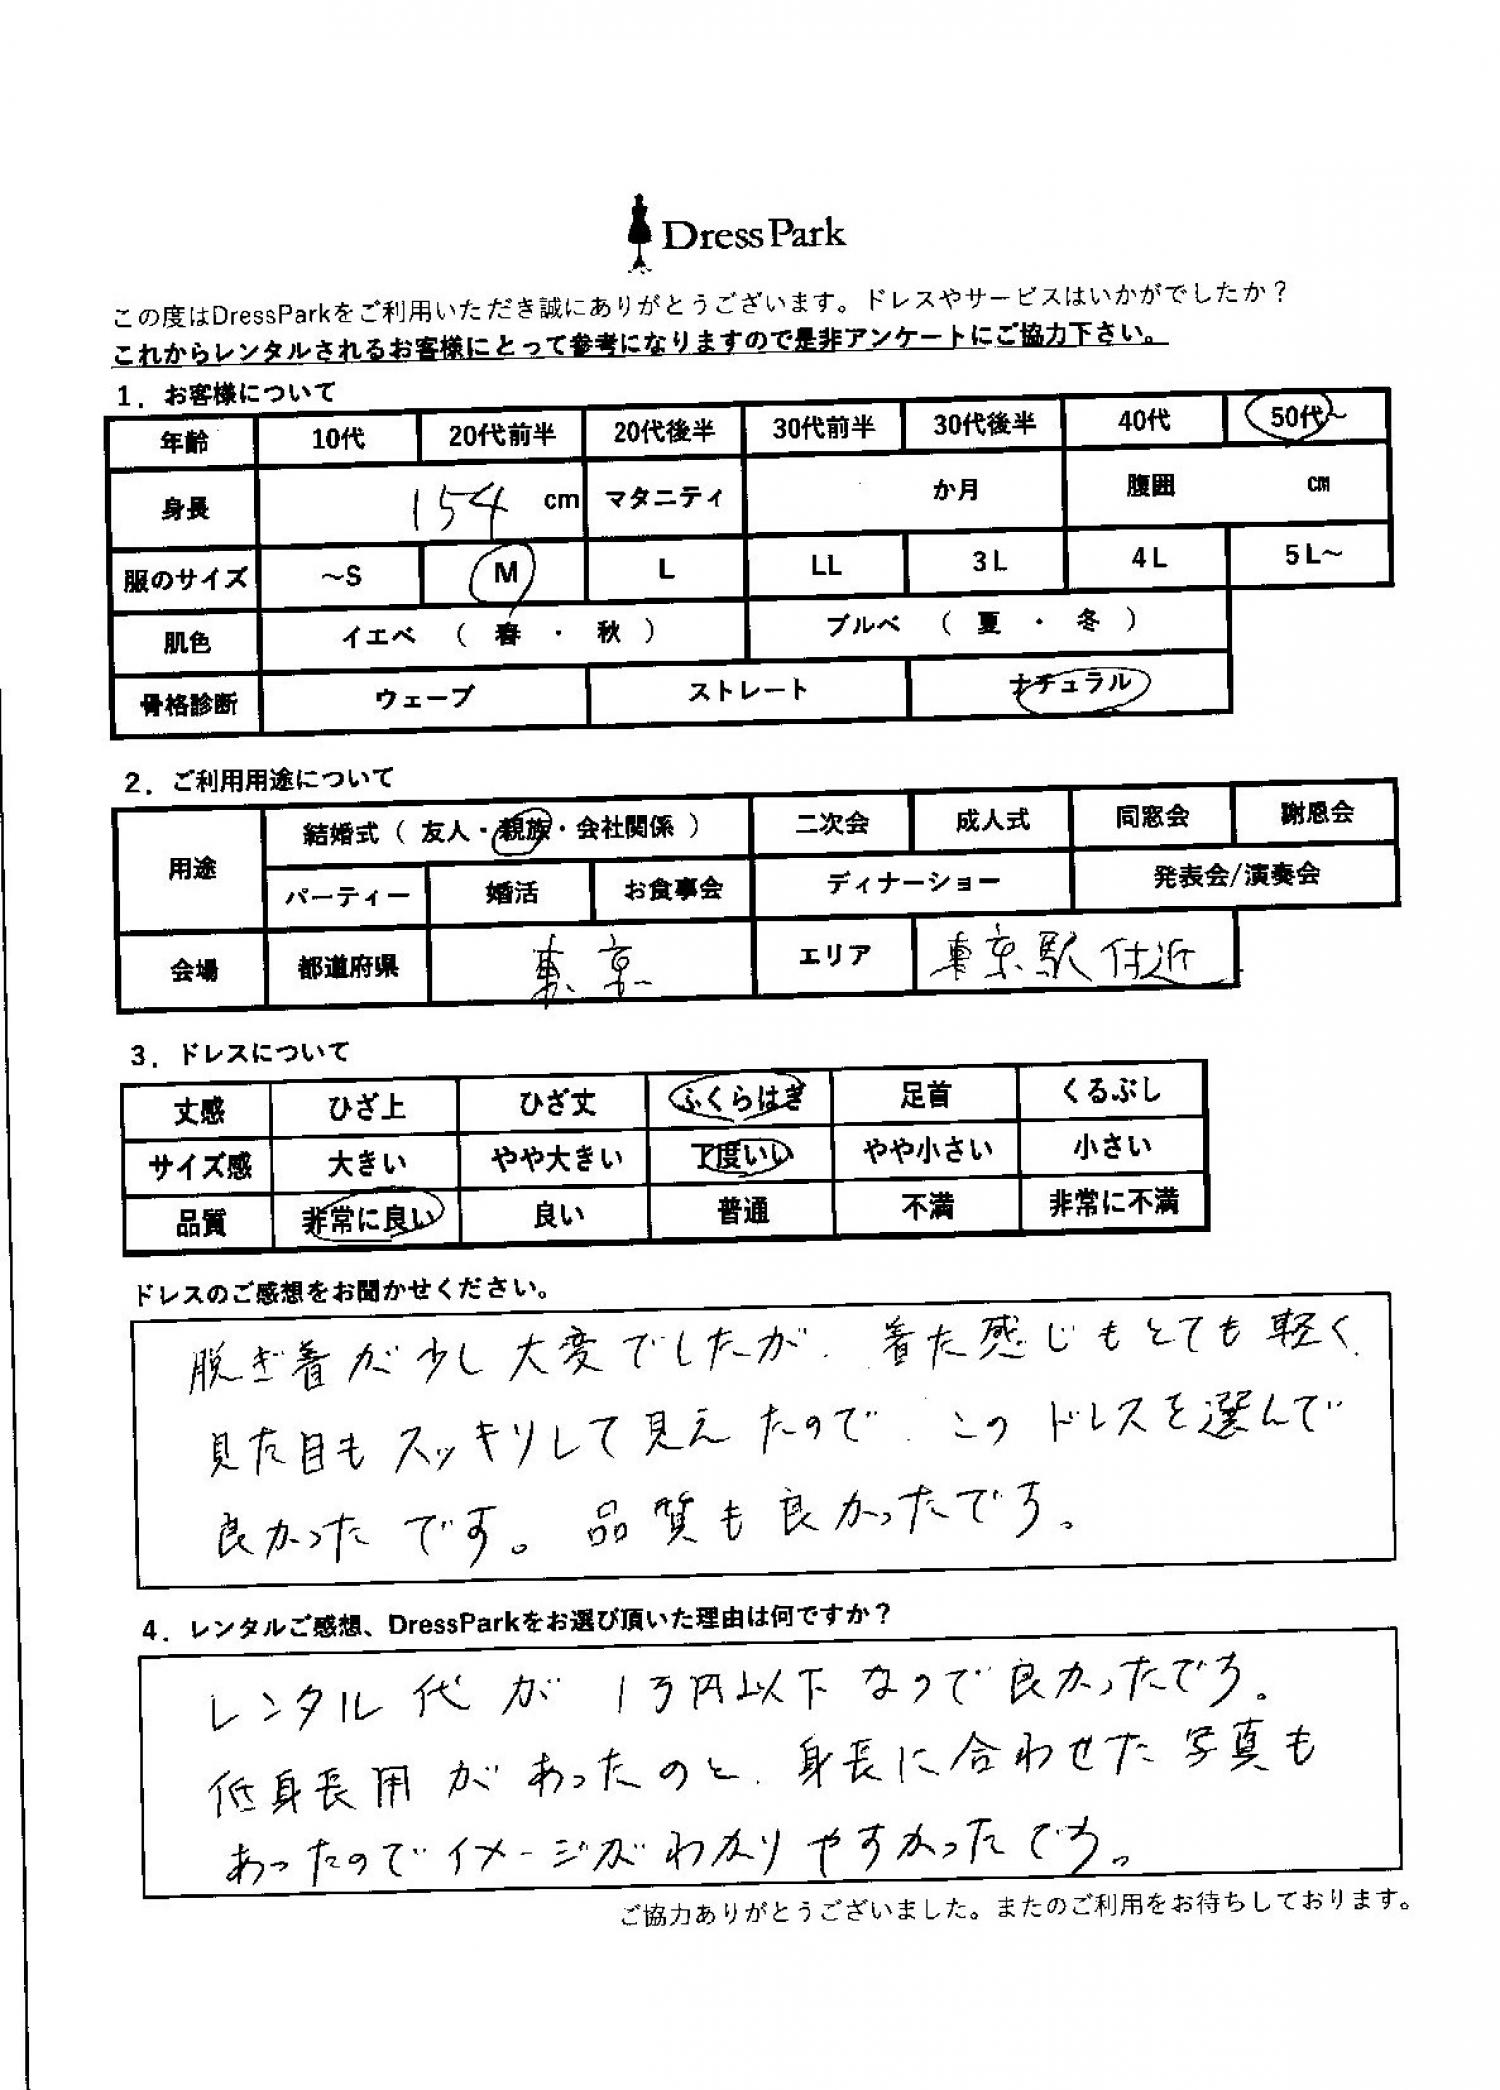 DressPark
この度はDressParkをご利用いただき誠にありがとうございます。ドレスやサービスはいかがでしたか？
これからレンタルされるお客様にとって参考になりますので是非アンケートにご協力下さい。
1．お客様について
年齢 10代 20代前半 20代後半 30代前半 30代後半 40代 50代～
身長 154 cm マタニティ か月 腹囲 cm
服のサイズ ～S M L LL 3L 4L 5L～
肌色 イエベ （ 春 ・ 秋 ） ブルベ （ 夏 ・ 冬 ）
骨格診断 ウェーブ ストレート ナチュラル
2．ご利用用途について
用途 結婚式（ 友人・親族・会社関係 ） 二次会 成人式 同窓会 謝恩会
パーティー 婚活 お食事会 ディナーショー 発表会/演奏会
会場 都道府県 東京 エリア 東京駅付近
3．ドレスについて
丈感 ひざ上 ひざ丈 ふくらはぎ 足首 くるぶし
サイズ感 大きい やや大きい 丁度いい やや小さい 小さい
品質 非常に良い 良い 普通 不満 非常に不満
ドレスのご感想をお聞かせください。
脱ぎ着が少し大変でしたが、着た感じもとても軽く、
見た目もスッキリして見えたので、このドレスを選んで
良かったです。品質も良かったです。
4．レンタルご感想、DressParkをお選び頂いた理由は何ですか？
レンタル代が1万円以下なので良かったです。
低身長用があったのと、身長に合わせた写真も
あったのでイメージがわかりやすかったです。
ご協力ありがとうございました。またのご利用をお待ちしております。